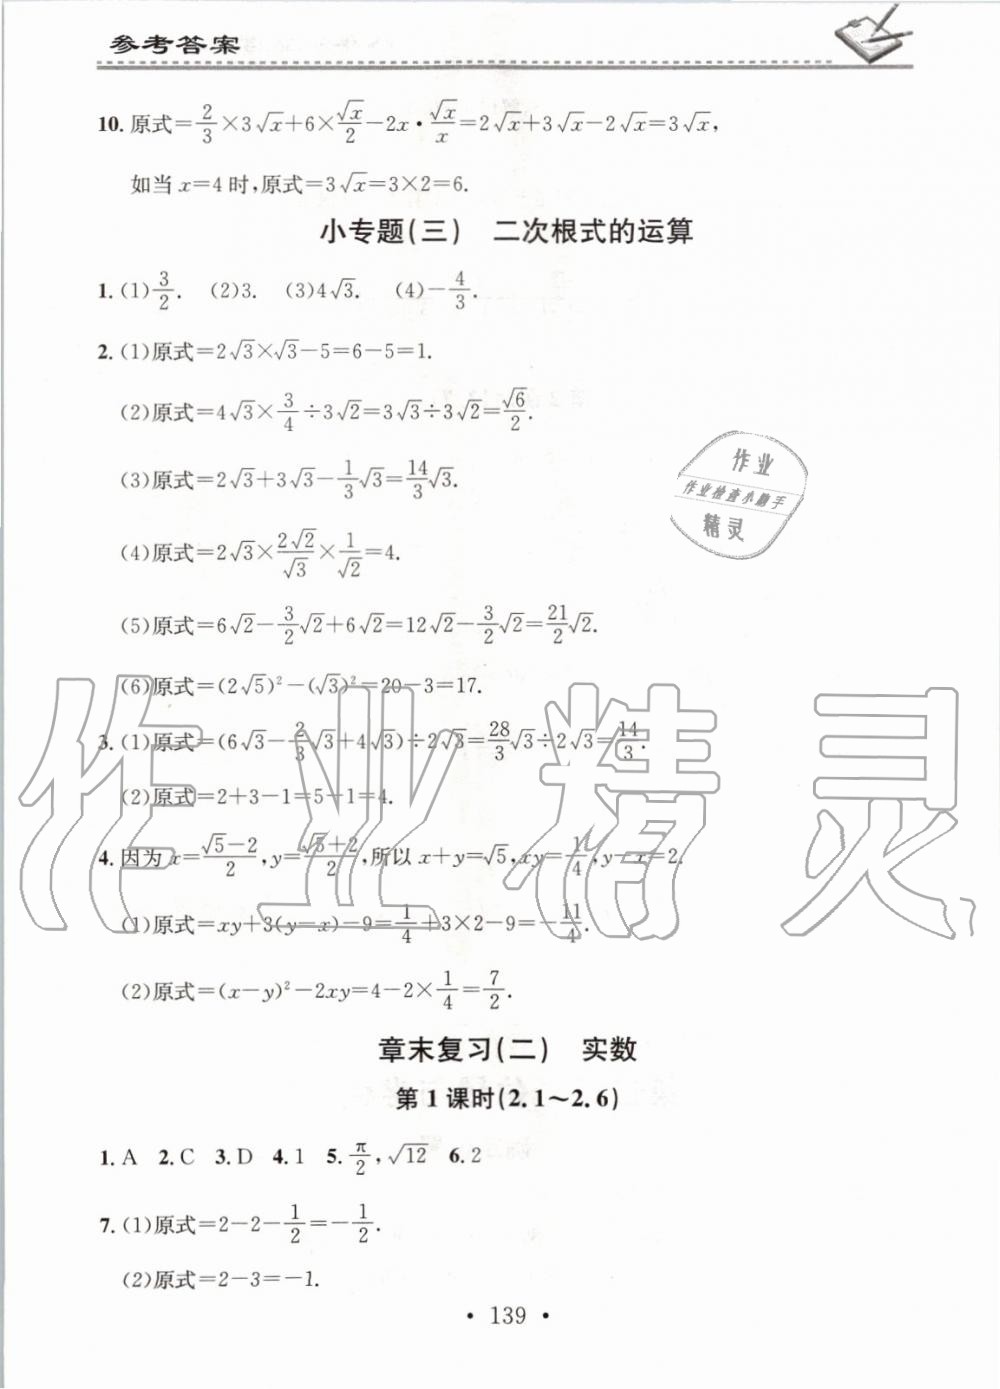 参考答案
10. 原式=2/3×3√x+6×√x/2-2x·√x/x=2√x+3√x-2√x=3√x,
如当 x=4 时,原式=3√x=3×2=6.
小专题(三) 二次根式的运算
1. (1)3/2. (2)3. (3)4√3. (4)-4/3.
2. (1)原式=2√3×√3-5=6-5=1.
(2)原式=4√3×3/4÷3√2=3√3÷3√2=√6/2.
(3)原式=2√3+3√3-1/3√3=14/3√3.
作业
作业检查小助手
精灵
(4)原式=2√3×2√2/√3×1/√2=4.
(5)原式=6√2-3/2√2+6√2=12√2-3/2√2=21/2√2.
(6)原式=(2√5)²-(√3)²=20-3=17.
作业精灵
3. (1)原式=(6√3-2/3√3+4√3)÷2√3=28/3√3÷2√3=14/3.
(2)原式=2+3-1=5-1=4.
4. 因为 x=(√5-2)/2,y=(√5+2)/2,所以 x+y=√5,xy=1/4,y-x=2.
(1)原式=xy+3(y-x)-9=1/4+3×2-9=-11/4.
(2)原式=(x-y)²-2xy=4-2×1/4=7/2.
章末复习(二) 实数
第 1 课时(2.1~2.6)
1. A 2. C 3. D 4. 1 5. π/2,√12 6. 2
7. (1)原式=2-2-1/2=-1/2.
(2)原式=2-3=-1.
· 139 ·